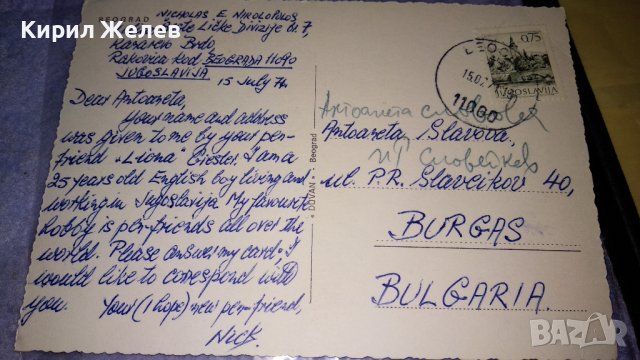 Кирил Желев
BEOGRAD
NICHOLAS E. NIKOLOPULOS
Ličke Divizije br 7,
Brdo,
Rakovica kod BEOGRADA 11090
JUGOSLAVIJA
15 July 74
Dear Antoaneta,
Your name and address
was given to me by your pen-
friend "Liona" Ciesler. I am a
25 years old English boy living and
working in Jugoslavija My favourite
hobby is pen-friends all over the
world. Please answer my card. I
would like to correspond with
you. Your (I hope) new pen-friend,
Nick.
« DOVAN » - Beograd
15.07
11000
0,75
JUGOSLAVIJA
Антоанета Славова
Antoaneta Slavova,
ПР Славейков
ul. P.R. Slavcikov 40,
BURGAS
BULGARIA.
BAZAR.bg